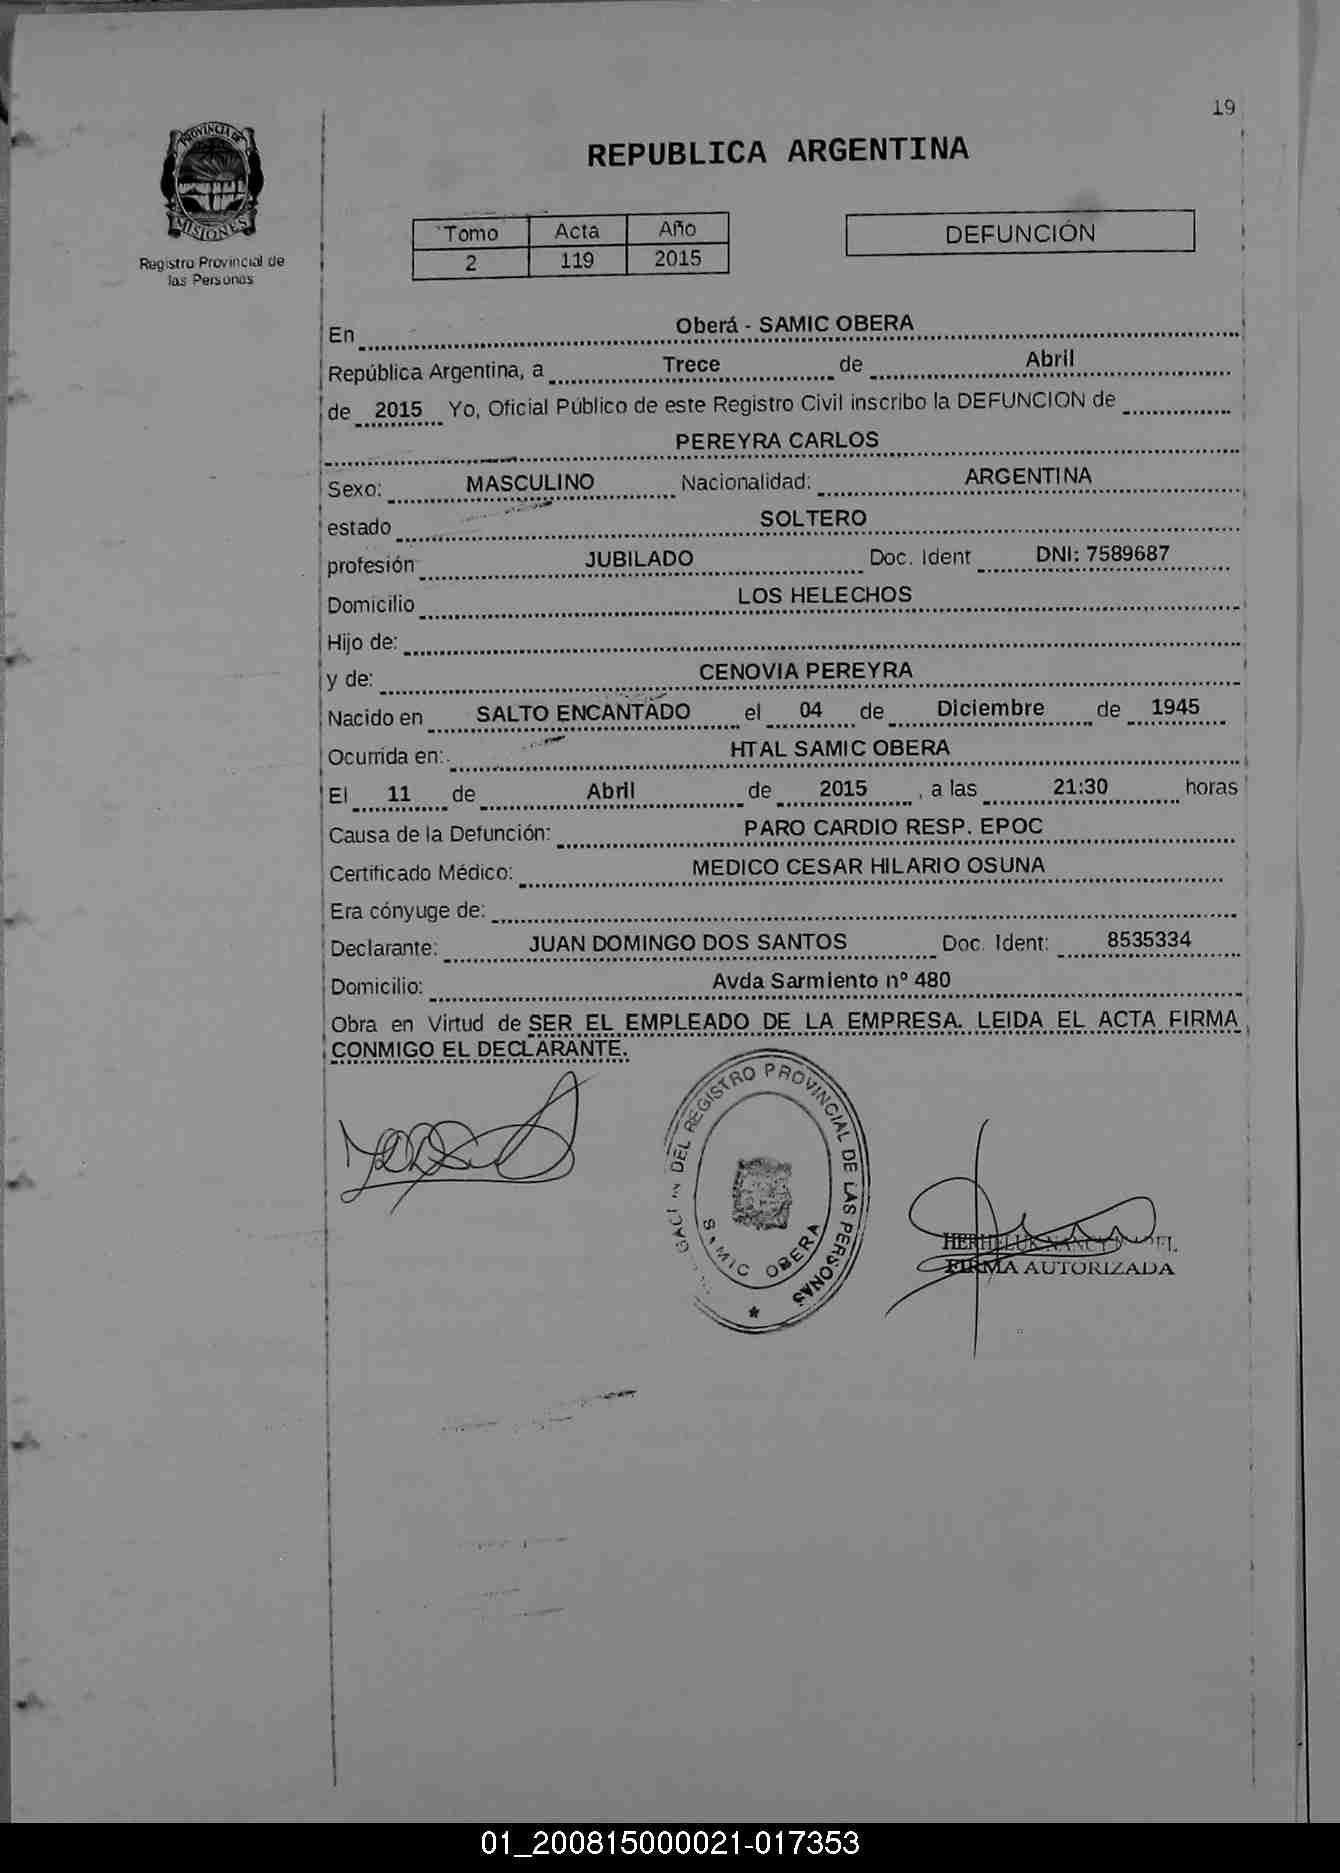 19
PROVINCIA DE
MISIONES
Registro Provincial de
las Personas
REPUBLICA ARGENTINA
Tomo Acta Año
2 119 2015
DEFUNCIÓN
En Oberá - SAMIC OBERA
República Argentina, a Trece de Abril
de 2015 Yo, Oficial Público de este Registro Civil inscribo la DEFUNCION de
PEREYRA CARLOS
Sexo: MASCULINO Nacionalidad: ARGENTINA
estado SOLTERO
profesión JUBILADO Doc. Ident DNI: 7589687
Domicilio LOS HELECHOS
Hijo de:
y de: CENOVIA PEREYRA
Nacido en SALTO ENCANTADO el 04 de Diciembre de 1945
Ocurrida en: HTAL SAMIC OBERA
El 11 de Abril de 2015, a las 21:30 horas
Causa de la Defunción: PARO CARDIO RESP. EPOC
Certificado Médico: MEDICO CESAR HILARIO OSUNA
Era cónyuge de:
Declarante: JUAN DOMINGO DOS SANTOS Doc. Ident: 8535334
Domicilio: Avda Sarmiento nº 480
Obra en Virtud de SER EL EMPLEADO DE LA EMPRESA. LEIDA EL ACTA FIRMA
CONMIGO EL DECLARANTE.
DEL REGISTRO PROVINCIAL DE LAS PERSONAS
OBERA
FIRMA AUTORIZADA
01_200815000021-017353